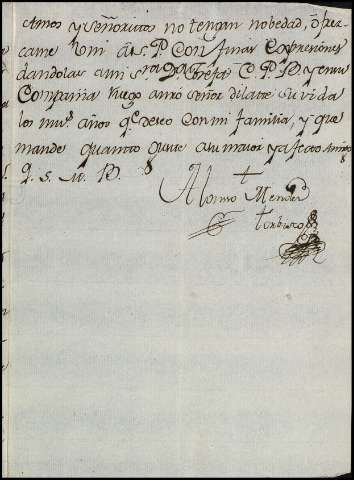 Amos y señoritos no tengan nobedad, ofrez-
came Vm a S. P. Con finas Expresiones
dandolas a mi s.ra D.a Tefa C. P. B y en su
Compañia Ruego a nro señor dilate su vida
los mu.s años q.e deseo Con mi familia, y que
mande quanto guste a su maior y afecto Amigo
q. s. m. B.
Alonso Mendez